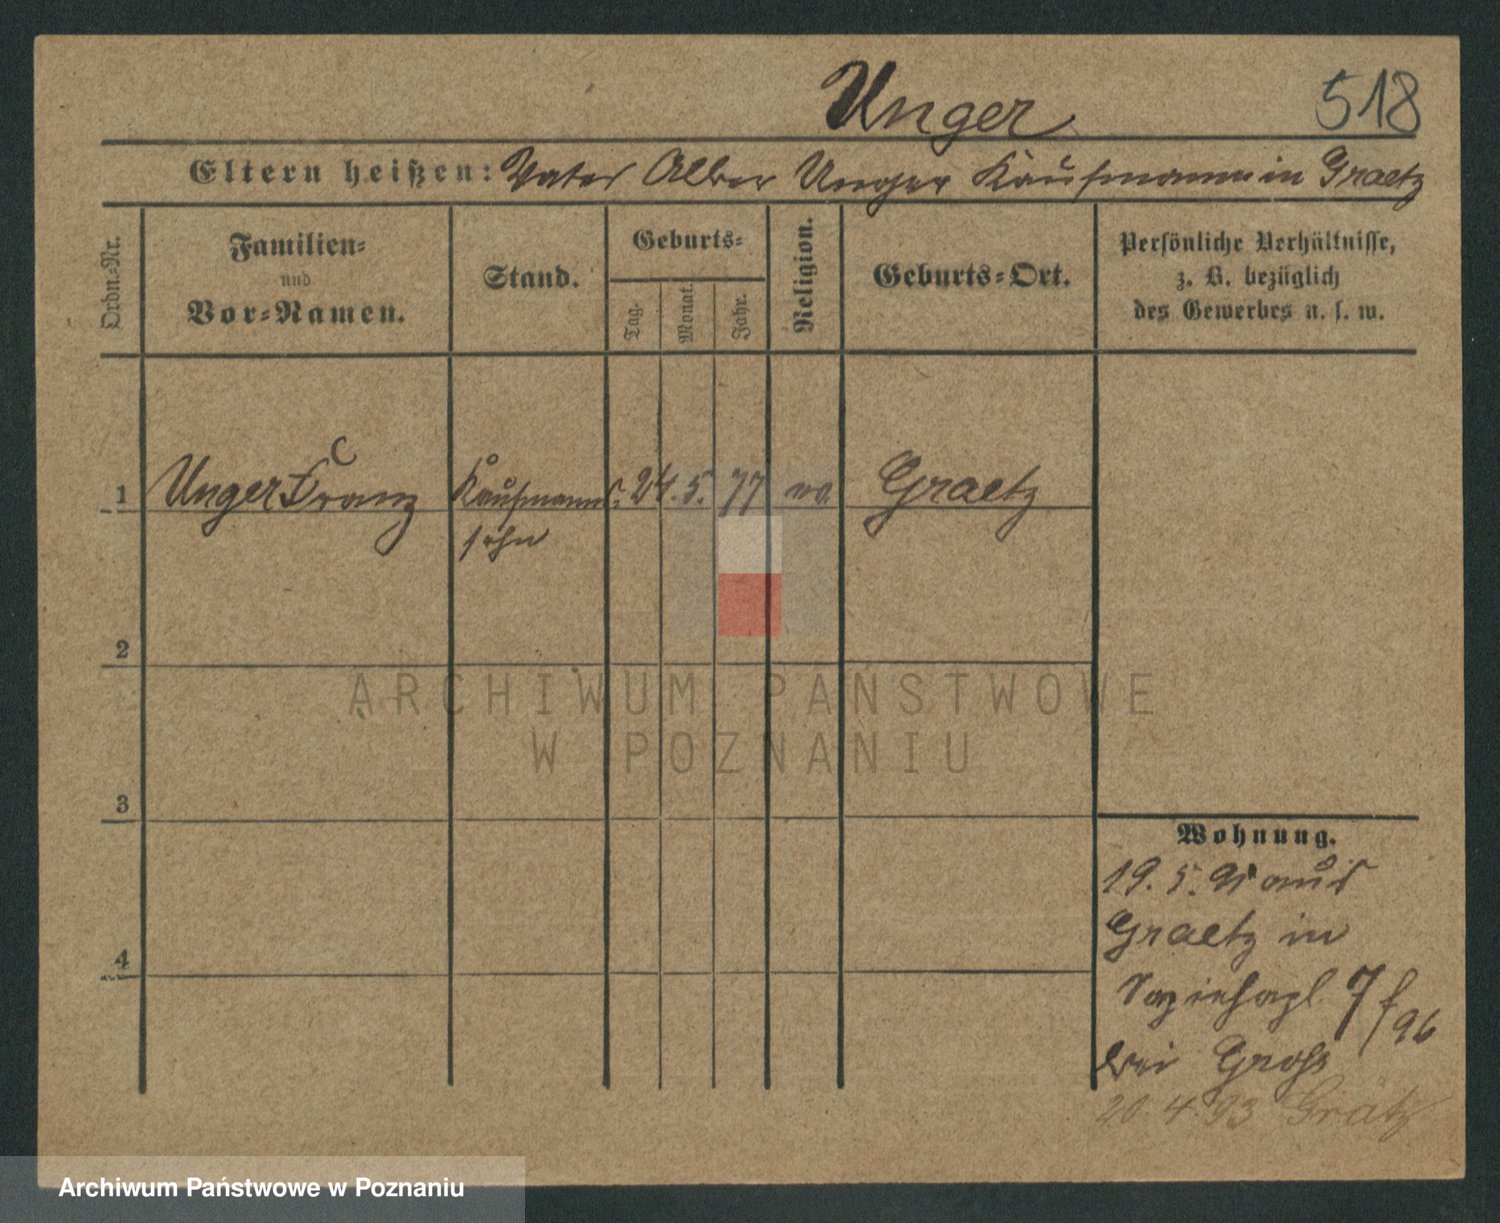 Unger 518
Eltern heißen: Vater Alber Unger Kaufmann in Graetz
Ordn.-Nr.
Familien-
und
Vor-Namen.
Stand.
Geburts-
Tag.
Monat.
Jahr.
Religion.
Geburts-Ort.
Persönliche Verhältnisse,
z. B. bezüglich
des Gewerbes u. s. w.
1 Unger Franz Kaufmanns- 24. 5. 77 Graetz
sohn
2
ARCHIWUM PAŃSTWOWE
W POZNANIU
3
Wohnung.
19. 5. 91 aus
Graetz in
4
96
bei Groß
20 4 93 Grätz
Archiwum Państwowe w Poznaniu